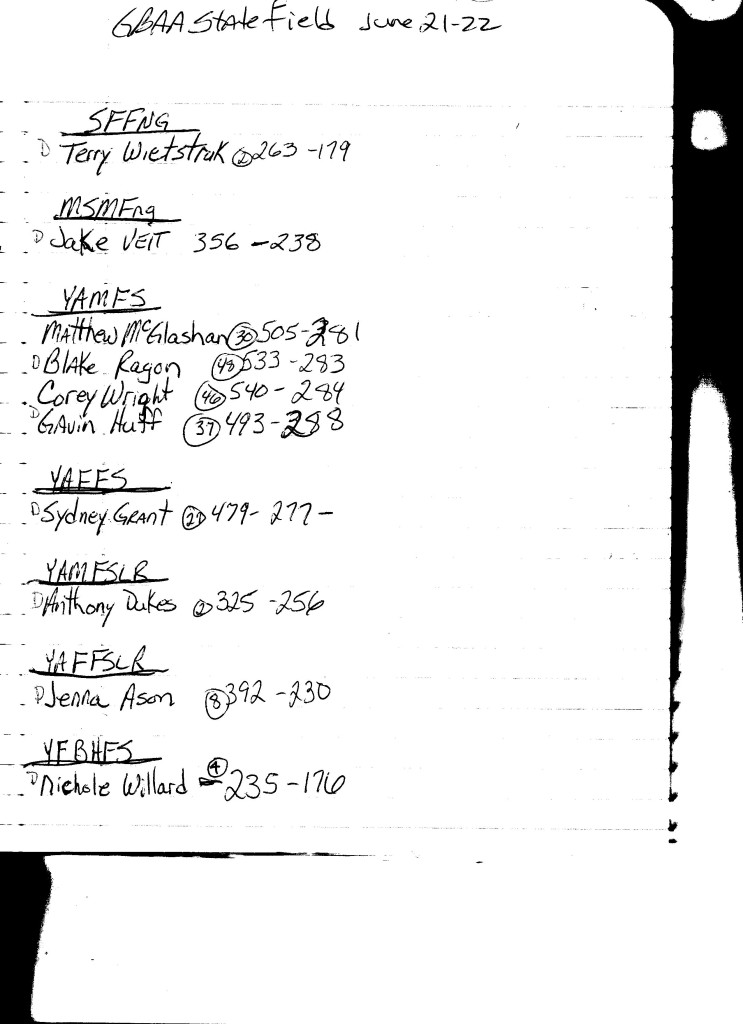 GBAA State Field June 21-22
SFFNG
D Terry Wietstruk ② 263 -179
MSMFng
D Jake VEIT 356 - 238
YAMFS
Matthew McGlashan ㉚ 505-281
D Blake Ragon ㊽ 533-283
Corey Wright ㊻ 540- 284
D GAvin Huff ㊲ 493-288
YAFFS
D Sydney Grant 479- 277-
YAMFSLR
D Anthony Dukes ② 325 -256
YAFFSLR
D Jenna Ason ⑧ 392 -230
YFBHFS
D Nichole Willard ④ 235-176